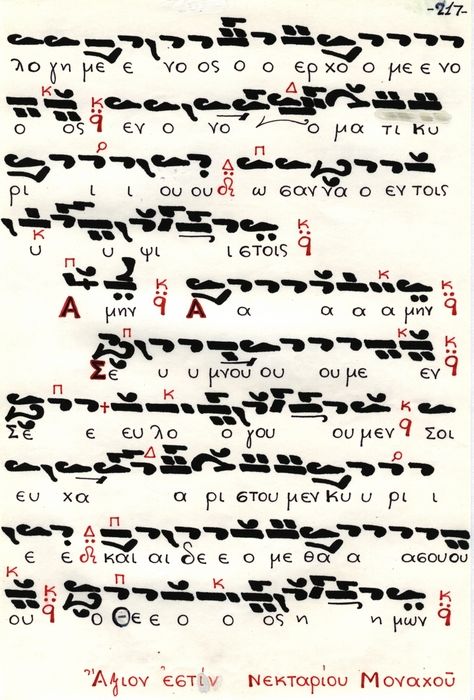 -217-
λο γη με ε νο ος ο ο ερ χο ο με ε νο
ο ος εν ο νο ο μα τι κυ
ρι ι ι ου ου ω σαν να ο εν τοις
υ υ ψι ι στοις
Α μην Α α α α α μην
Σε υ υ μνου ου ου με εν
Σε ε ευ λο ο γου ου μεν Σοι
ευ χα α ρι στου μεν Κυ υ ρι ι
ε ε και αι δε ε ο με θα α α σου ου
ου ο Θε ε ο ο ος η η μων
Ἄξιον ἐστίν Νεκταρίου Μοναχοῦ